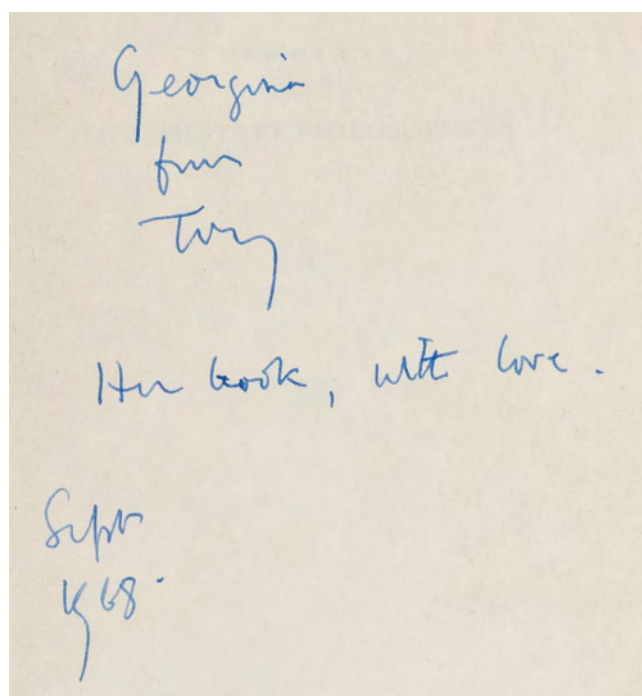 Georgina
from
Tony
Her book, with love.
Sept
1968.